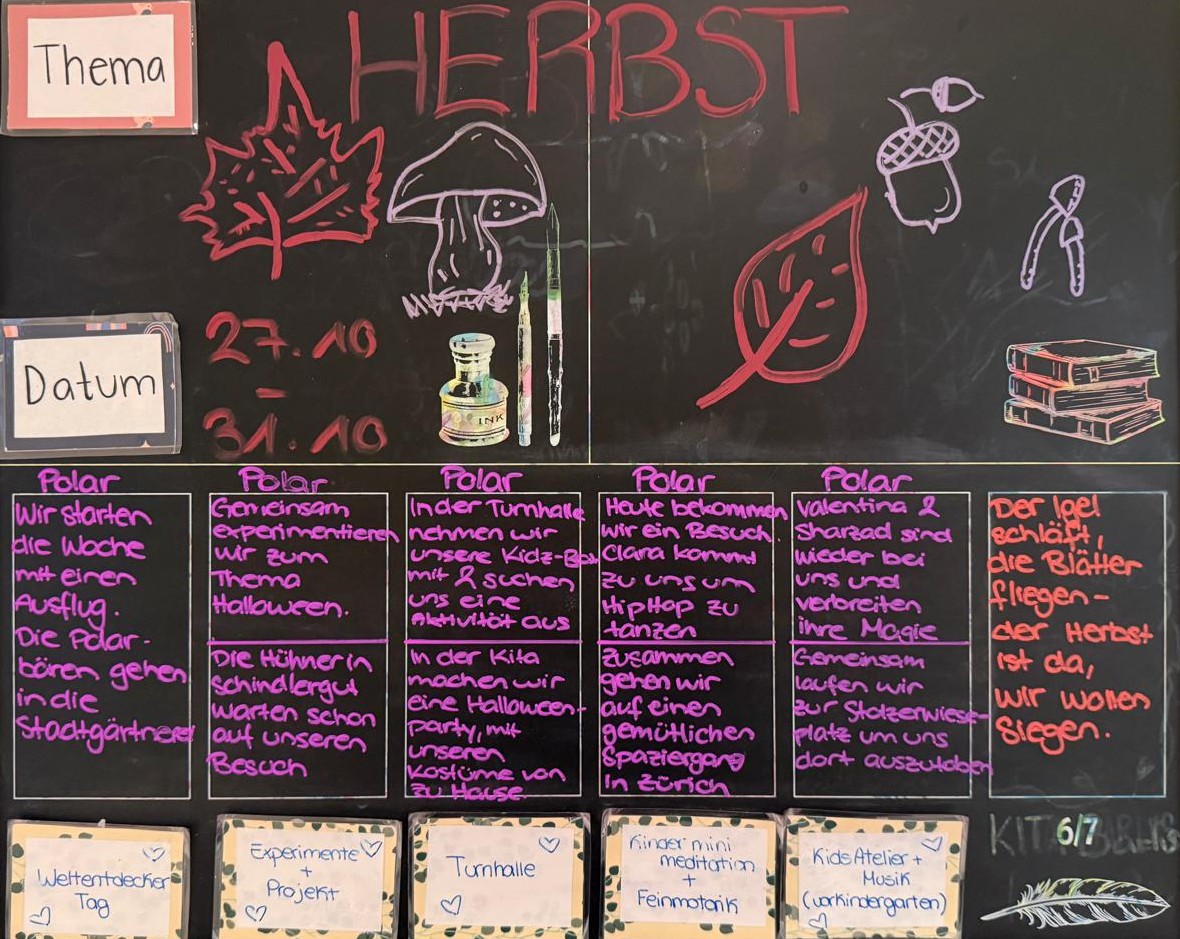 Thema
HERBST
Datum
27.10
-
31.10
INK
Polar
Wir starten
die Woche
mit einen
Ausflug.
Die Polar-
bären gehen
in die
Stadtgärtnerei
Weltentdecker
Tag
Polar
Gemeinsam
experimentieren
wir zum
Thema
Halloween.
Die Hühner in
Schindlergut
warten schon
auf unseren
Besuch
Experimente
+
Projekt
Polar
In der Turnhalle
nehmen wir
unsere Kidz-Box
mit & suchen
uns eine
Aktivität aus
In der Kita
machen wir
eine Halloween-
party, mit
unseren
Kostüme von
zu Hause
Turnhalle
Polar
Heute bekommen
wir ein Besuch.
Clara kommt
zu uns um
HipHop zu
tanzen
Zusammen
gehen wir
auf einen
gemütlichen
Spaziergang
in Zürich
Kinder mini
meditation
+
Feinmotorik
Polar
Valentina &
Sharzad sind
wieder bei
uns und
verbreiten
ihre Magie
Gemeinsam
laufen wir
zur Stolzerwiese-
platz um uns
dort auszutoben
Kids Atelier +
Musik
(vorkindergarten)
Der Igel
schläft,
die Blätter
fliegen-
der Herbst
ist da,
wir wollen
Siegen.
6/7